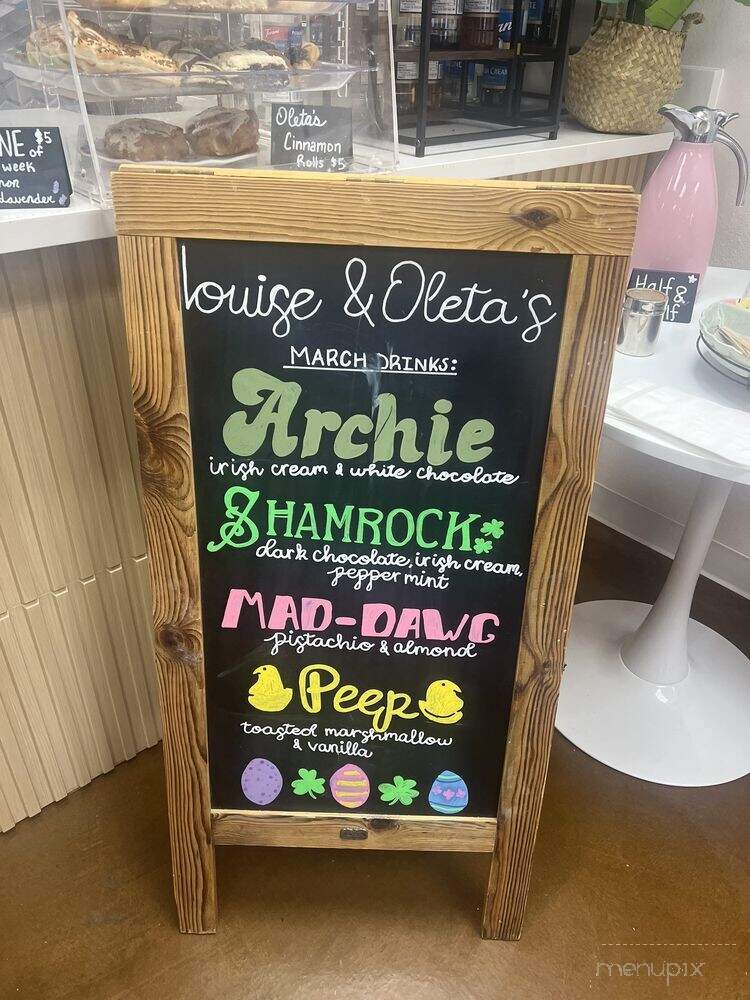 NE of $5
week
Lavender
Oleta's
Cinnamon
Rolls $5
Half &
Louise & Oleta's
MARCH DRINKS:
Archie
irish cream & white chocolate
SHAMROCK
dark chocolate, irish cream,
peppermint
MAD-DAWG
pistachio & almond
Peep
toasted marshmallow
& vanilla
menupix